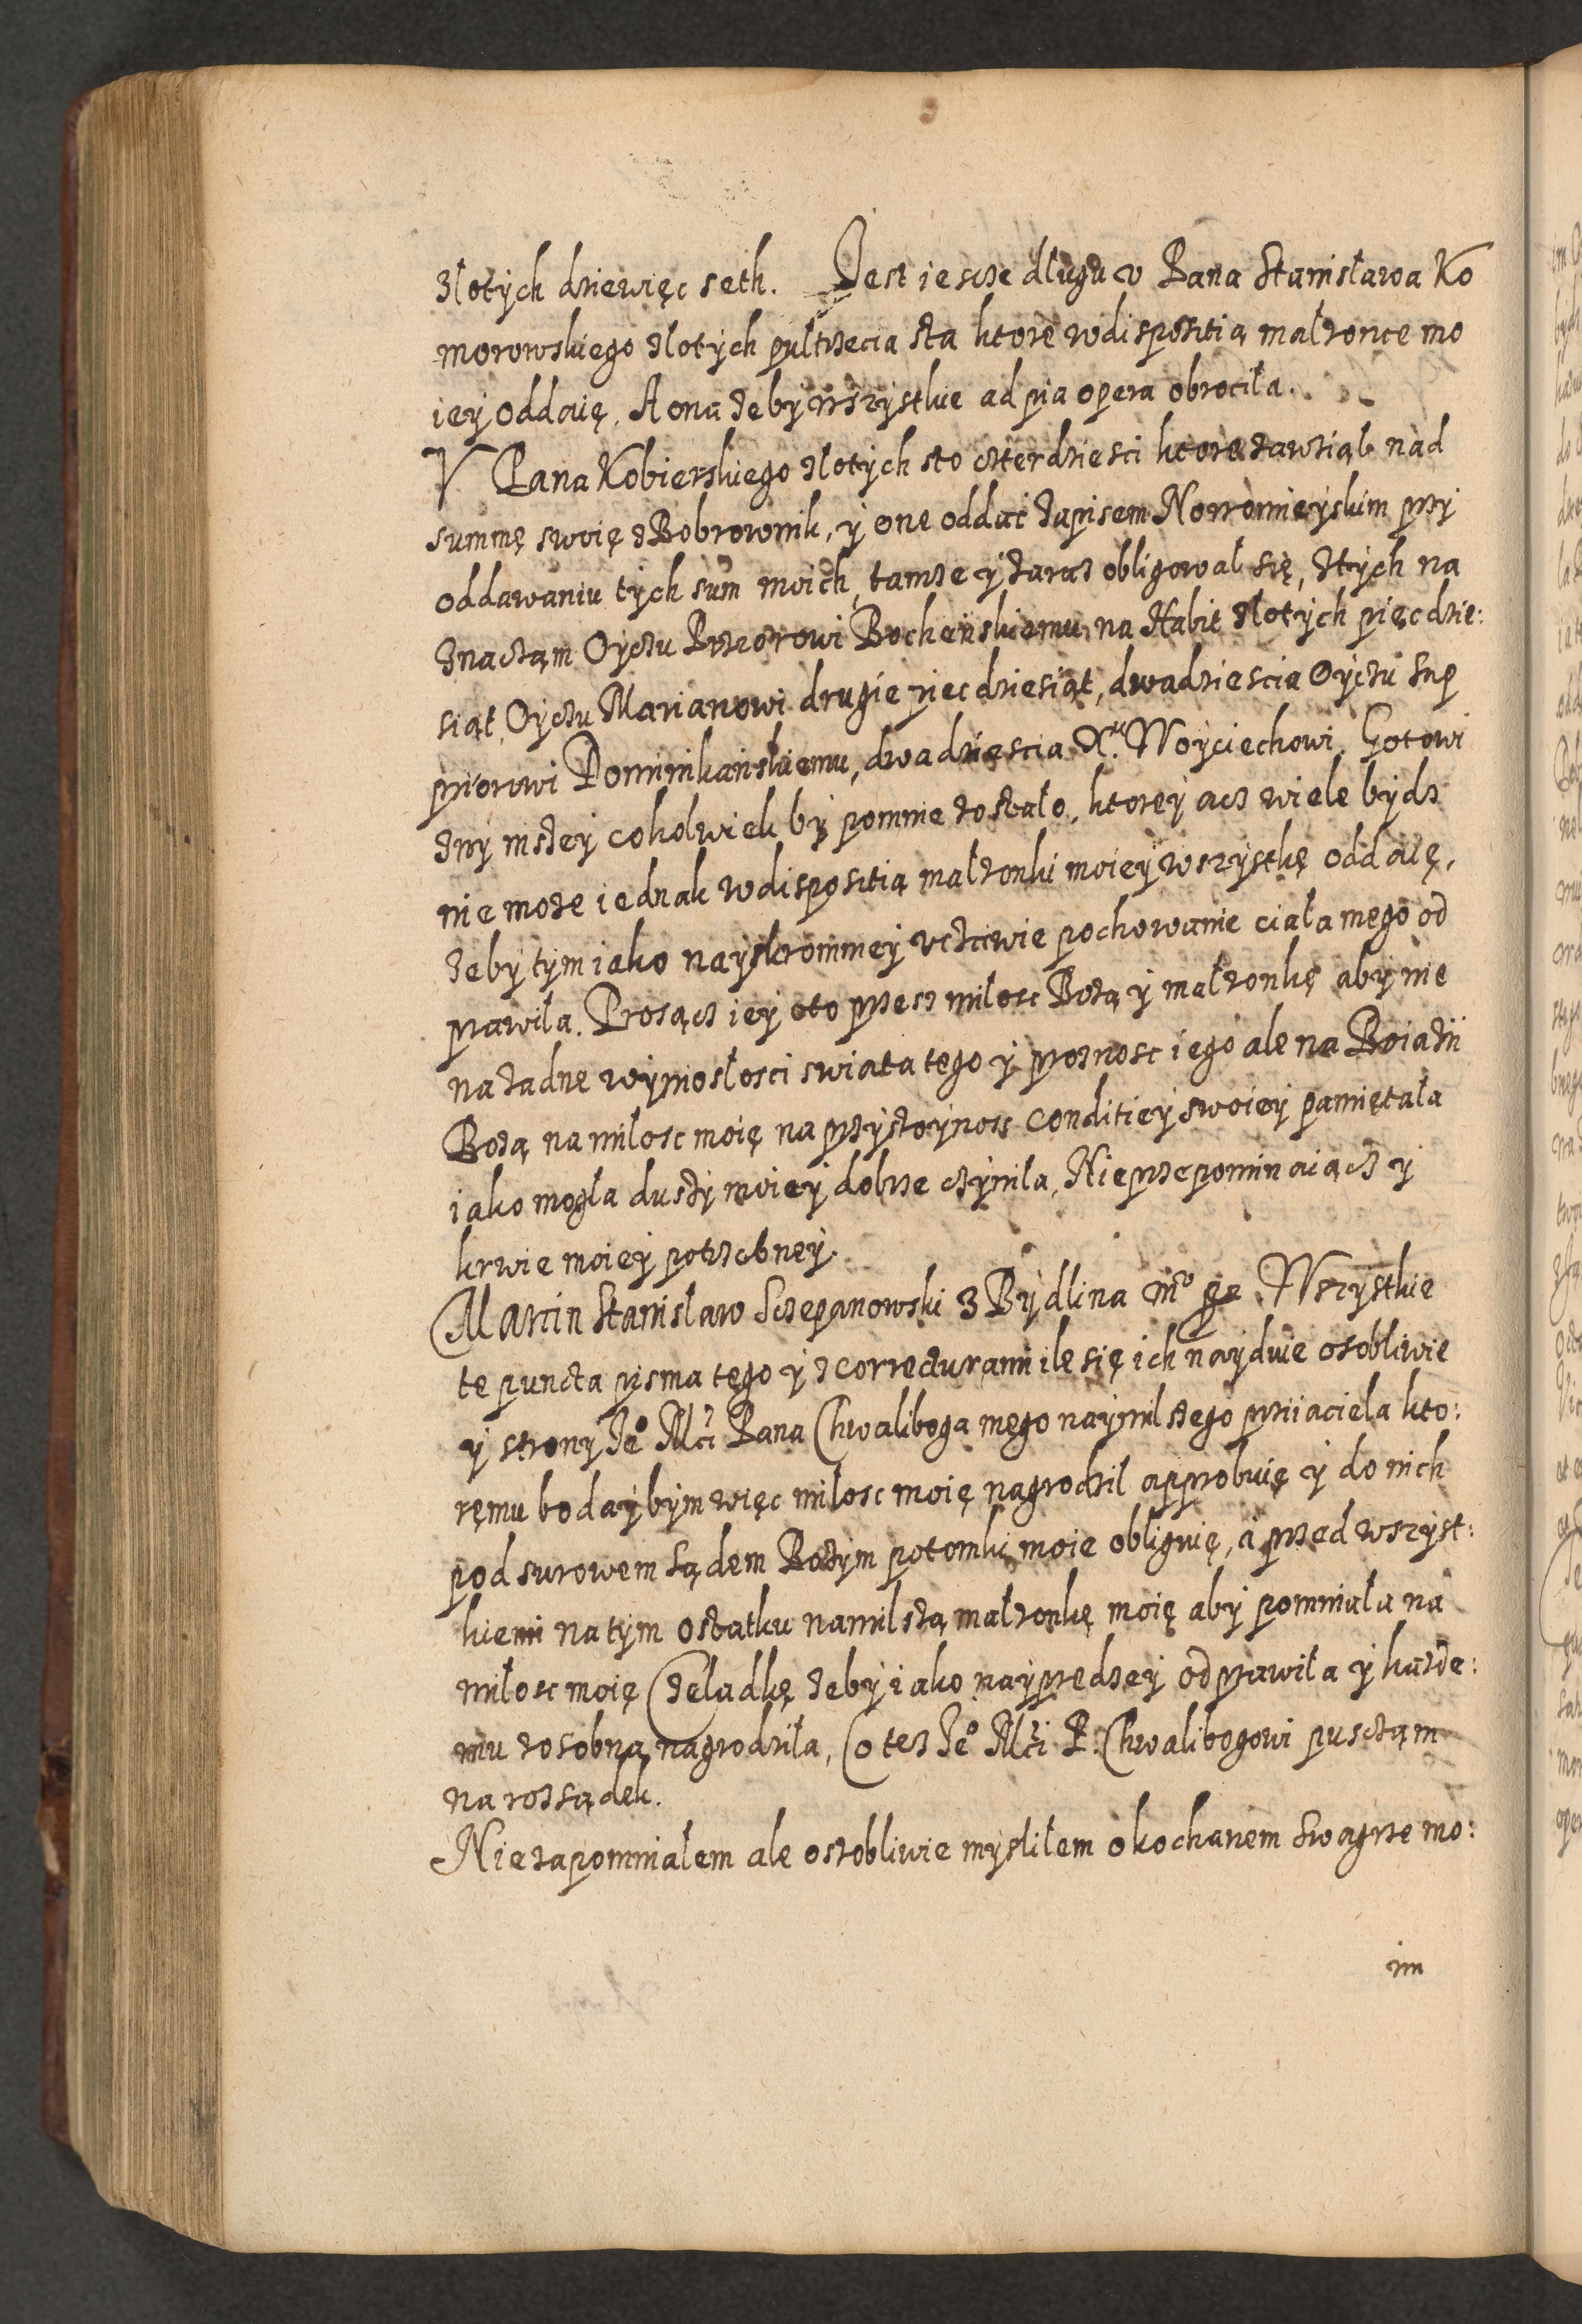 złotych dziewięc seth. Jest iescze długu v Pana Stanisława Ko
morowskiego złotych pułtrzecia sta ktore w dispozitią małzonce mo
iey oddaię, A ona zeby wszystkie ad pia opera obrociła.
V Pana Kobierskiego złotych sto czterdziesci ktore zawziął nad
summę swoię z Bobrownik, y one oddać zapisem Nowomieyskim przy
oddawaniu tych sum moich, tamze y zaraz obligował się, z tych na
znaczam Oyczu Przeorowi Bocheńskiemu na Habit złotych pięcdzie:
siąt, Oyczu Marianowi drugie piecdziesiąt, dwadziescia Oyczu Sup
priorowi Dominikańskiemu, dwadziescia X. Woyciechowi. Gotowi
zny inszey cokolwiek by po mnie zostało, ktorey acz wiele bydz
nie moze iednak w dispozitią małzonki moiey wszystkę oddaię,
zeby tym iako nayskromniey vczciwie pochowanie ciała mego od
prawiła. Prosącz iey oto przesz milosc Bozą y małzonkę aby nie
na zadne wyniosłosci swiata tego y proznosc iego ale na Boiazń
Bozą na milosc moię na przystoynosc conditiey swoiey pamiętała
iako mogła duszy moiey dobrze czyniła, Nieprzepominaiącz y
krwie moiey potrzebney.
Marcin Stanisław Sczepanowski z Bydlina m<sup>o</sup> pr Wszystkie
te puncta pisma tego y z correcturami ile się ich naydzie osobliwie
y strony Je<sup>o</sup> Mći Pana Chwaliboga mego naymilszego przyiaciela kto:
remu bodaybym więc milosc moię nagrodził approbuię y do nich
pod surowem sądem Bozym potomki moie obliguię, a przed wszyst:
kiemi na tym ostatku namilszą małzonkę moię aby pomniała na
miłosc moię Czeladkę zeby iako nayprędzey odprawiła y kazde:
mu zosobna nagrodziła, Co tez Je<sup>o</sup> Mći P. Chwalibogowi pusczam
na rozsądek.
Niezapomniałem ale oszobliwie myslilem o kochanem Swagrze mo:
im